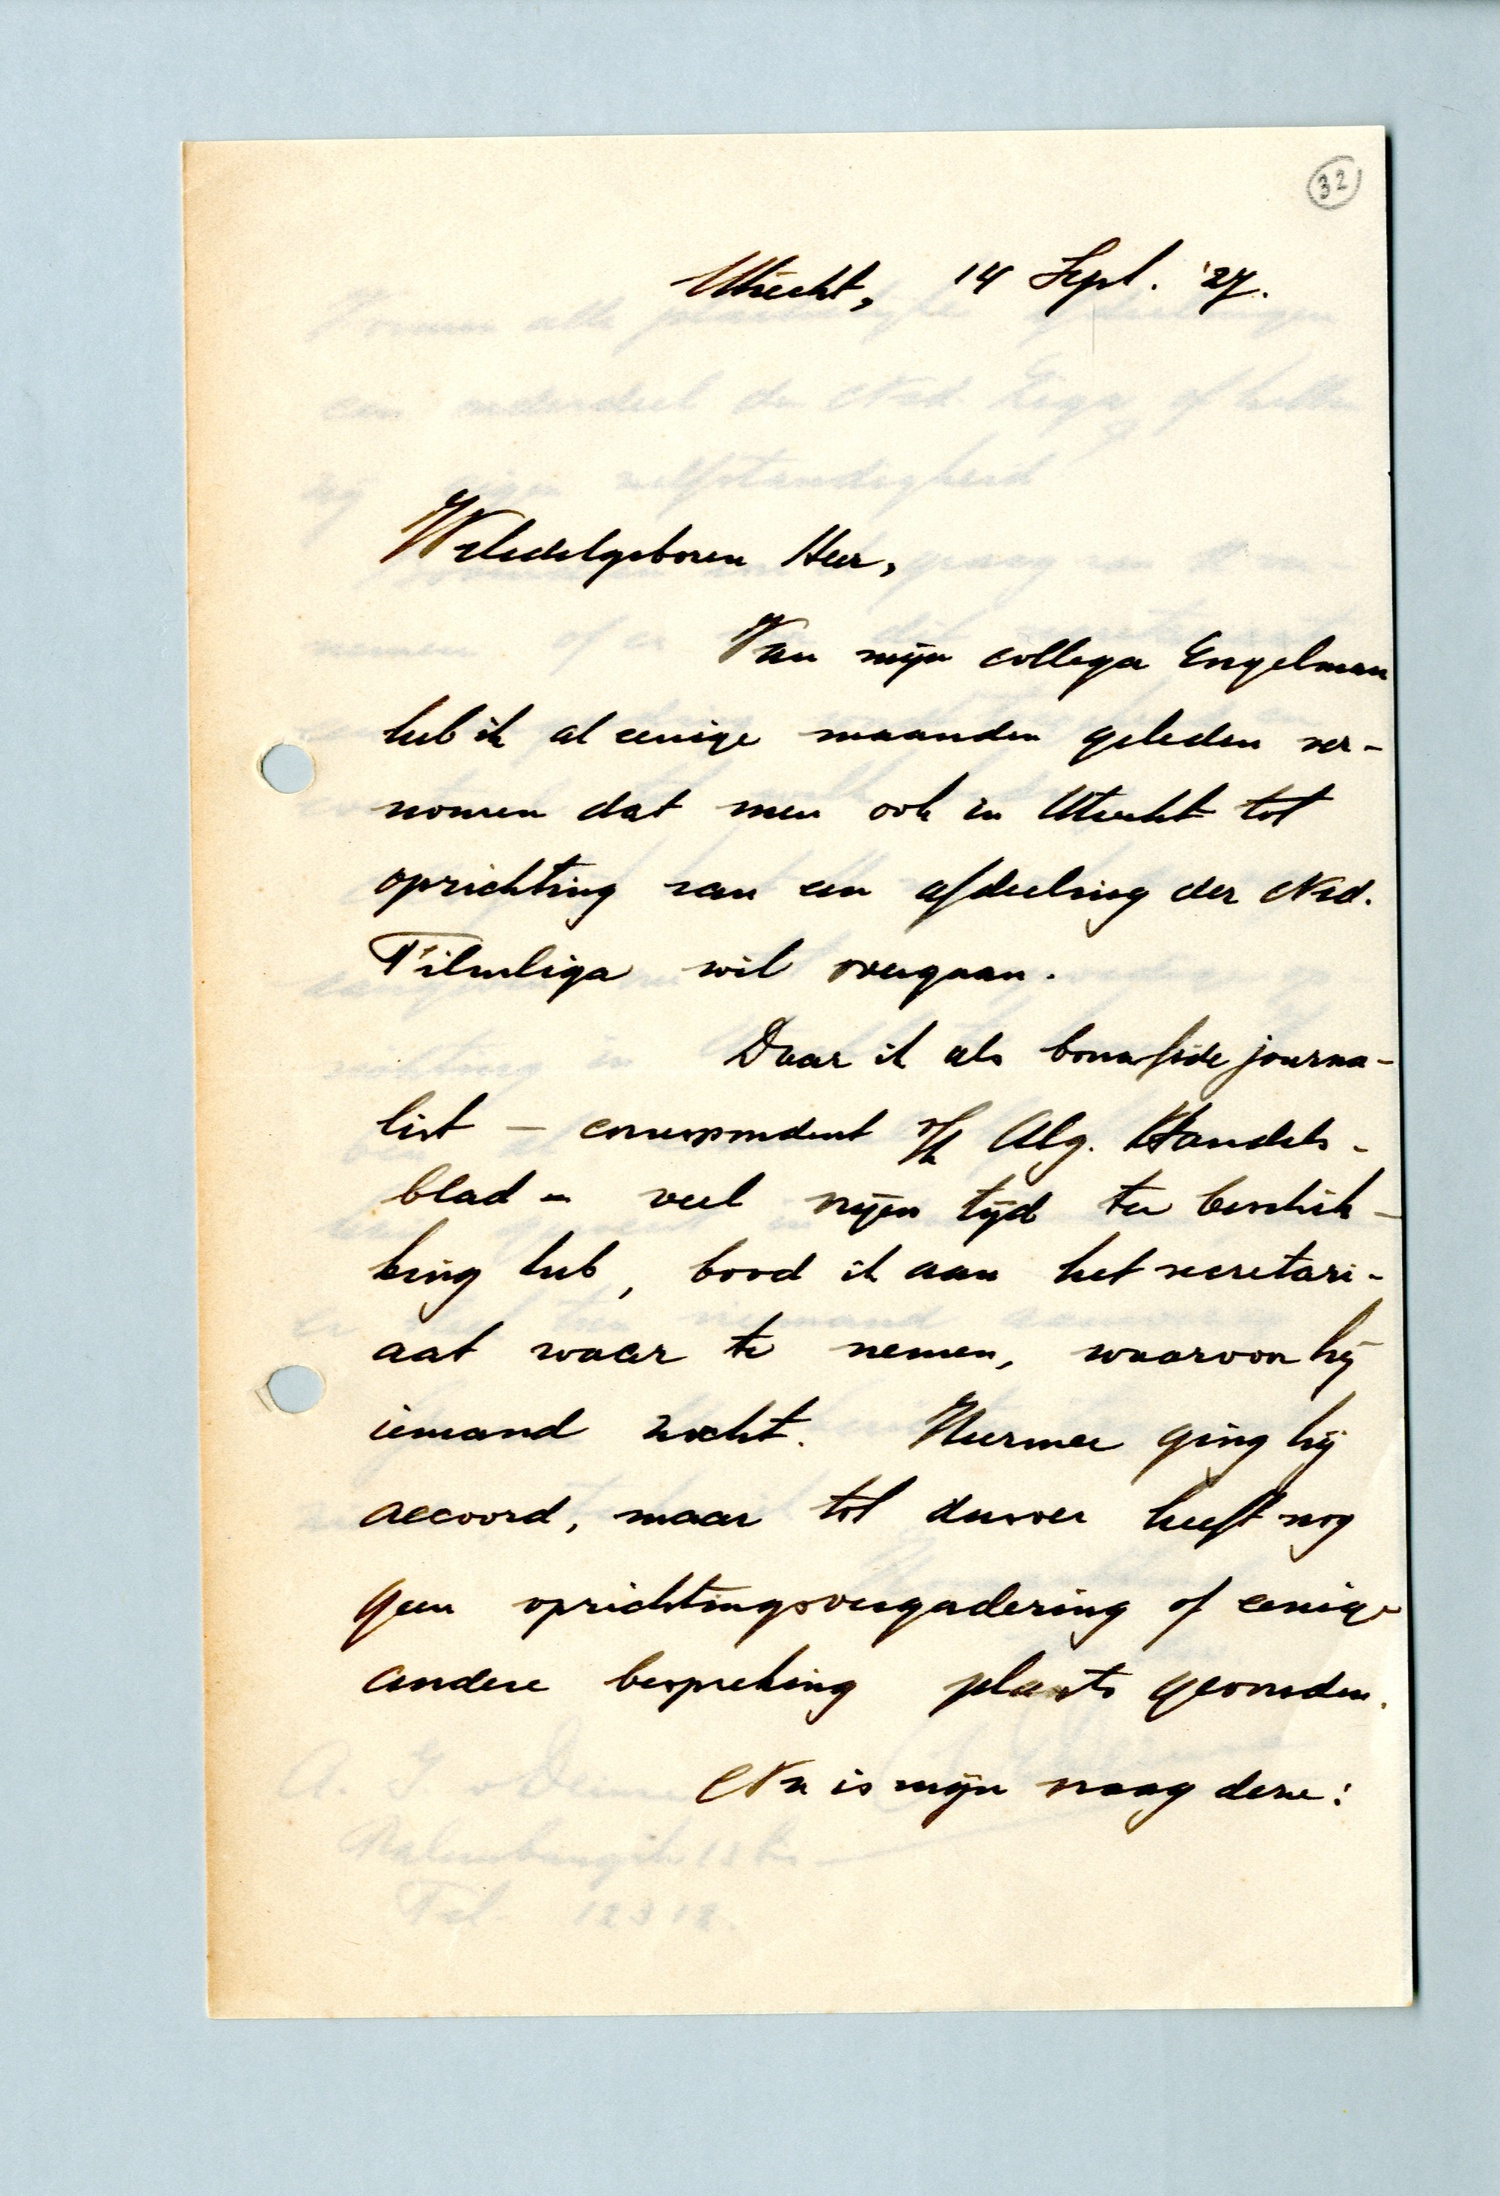 32
Utrecht, 14 Sept. '27.
Weledelgeboren Heer,
Van mijn collega Engelman
heb ik al eenige maanden geleden ver-
nomen dat men ook in Utrecht tot
oprichting van een afdeeling der Ned.
Filmliga wil overgaan.
Daar ik als bonafide journa-
list — correspondent v/h Alg. Handels-
blad — veel vrijen tijd ter beschik-
king heb, bood ik aan het secretari-
aat waar te nemen, waarvoor hij
iemand zocht. Hiermee ging hij
accoord, maar tot dusver heeft nog
geen oprichtingsvergadering of eenige
andere bespreking plaats gevonden.
Nu is mijn vraag deze: